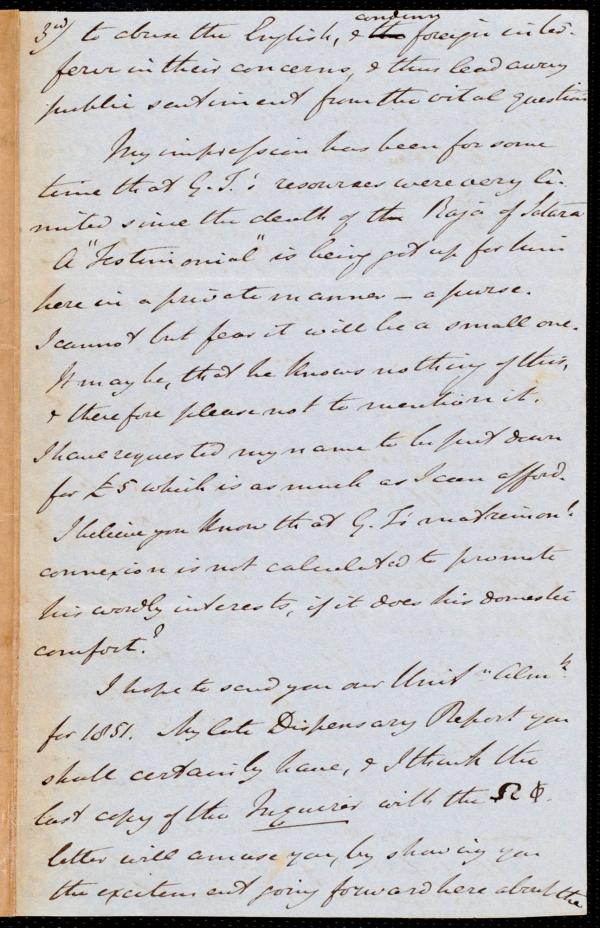 3rd) to abuse the English, & condemn foreign inter-
ference in their concerns, & thus lead away
public sentiment from the vital question
My impression has been for some
time that G. T.'s resources were very li-
mited since the death of the Raja of Satara
A "Testimonial" is being got up for him
here in a private manner — a purse.
I cannot but fear it will be a small one.
It may be, that he knows nothing of this,
& therefore please not to mention it.
I have requested my name to be put down
for £5 which is as much as I can afford.
I believe you know that G. T.'s matrimonl.
connexion is not calculated to promote
his wordly interests, if it does his domestic
comfort?
I hope to send you our Unitn Almk.
for 1851. My late Dispensary Report you
shall certainly have, & I think the
last copy of the Inquirer with the Ω Φ.
letter will amuse you, by showing you
the excitement going forward here about the